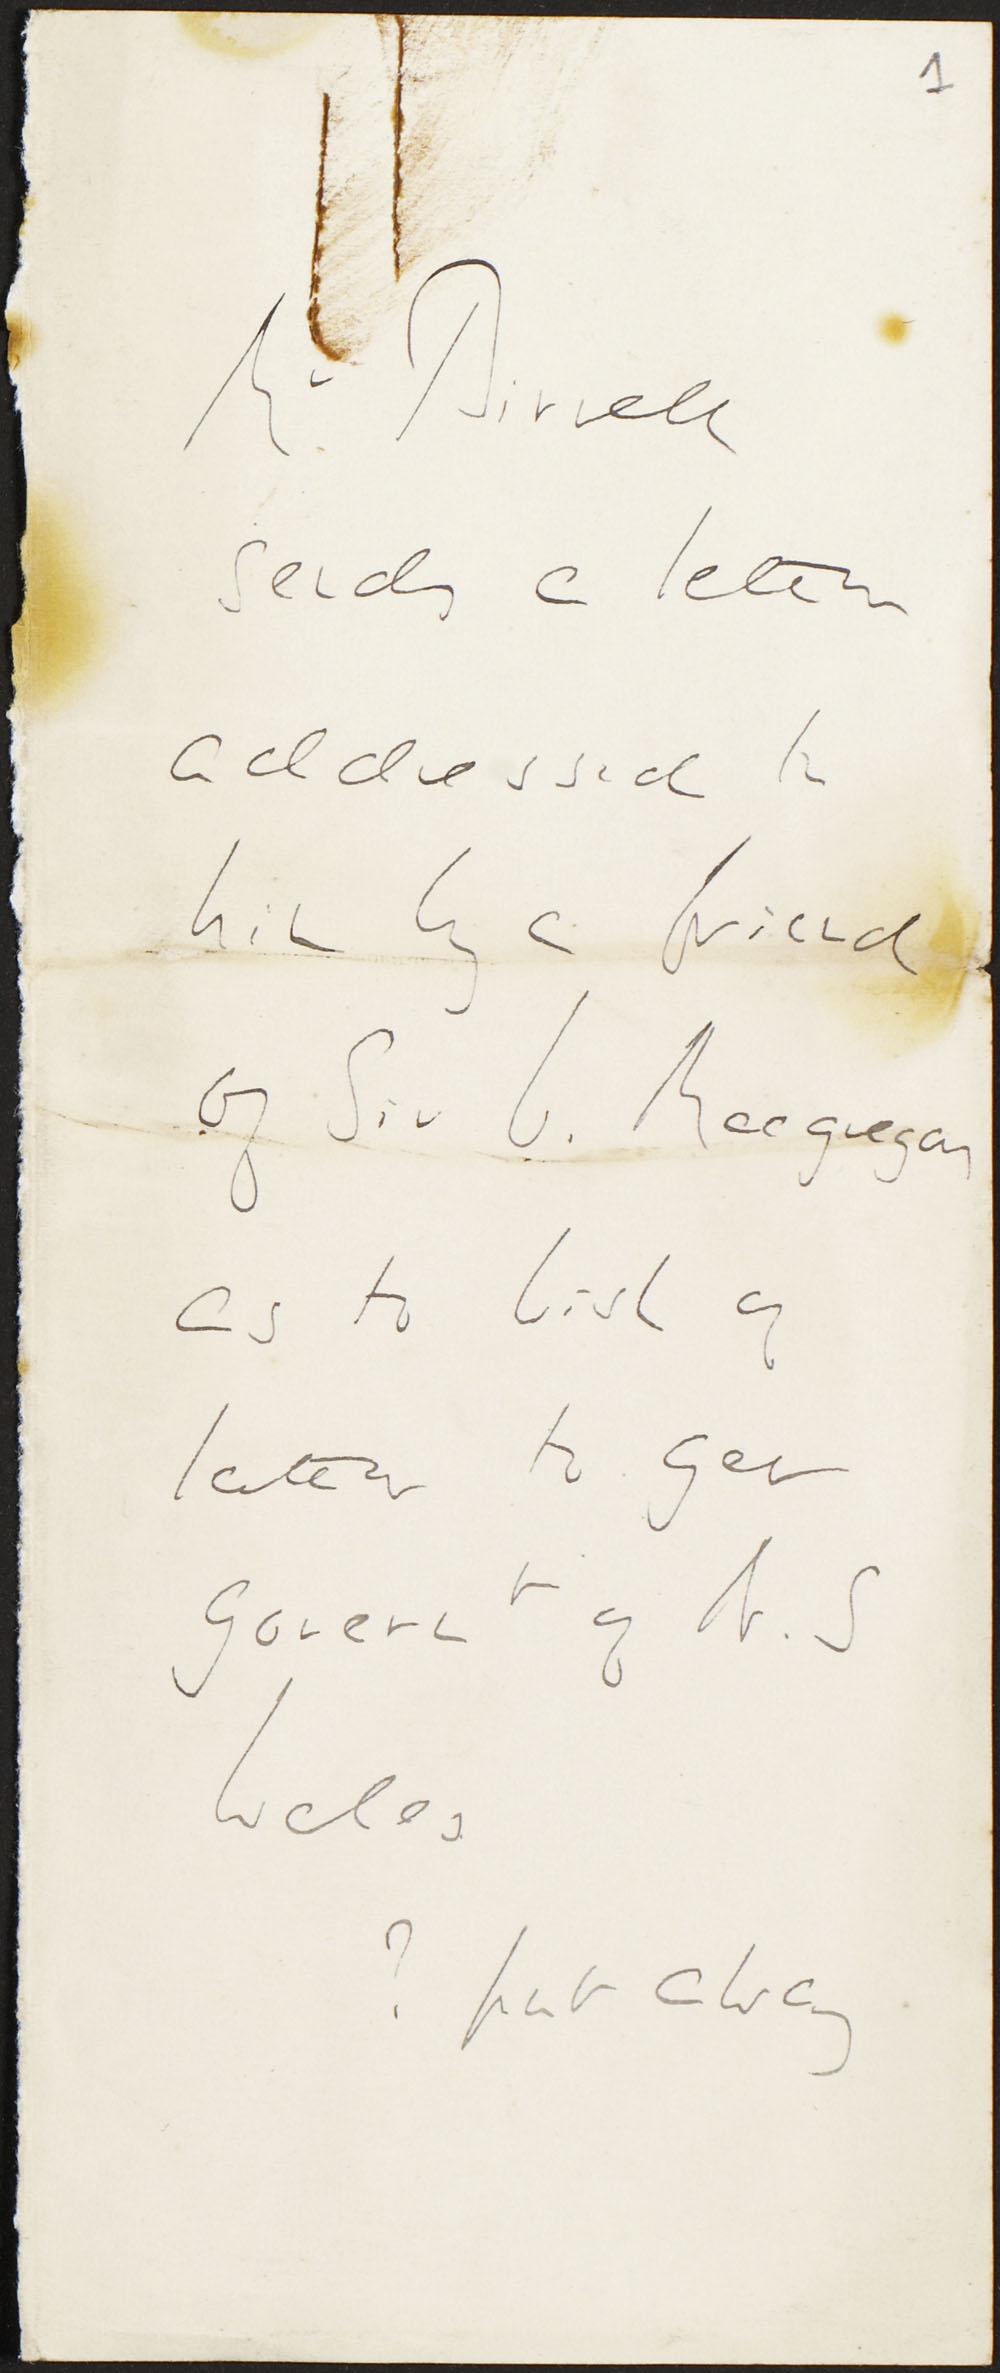 1
Mr. Birrell
sends a letter
addressed to
him by a friend
of Sir W. Macgregor
as to wish of
latter to get
Governt of N. S
Wales
? put away